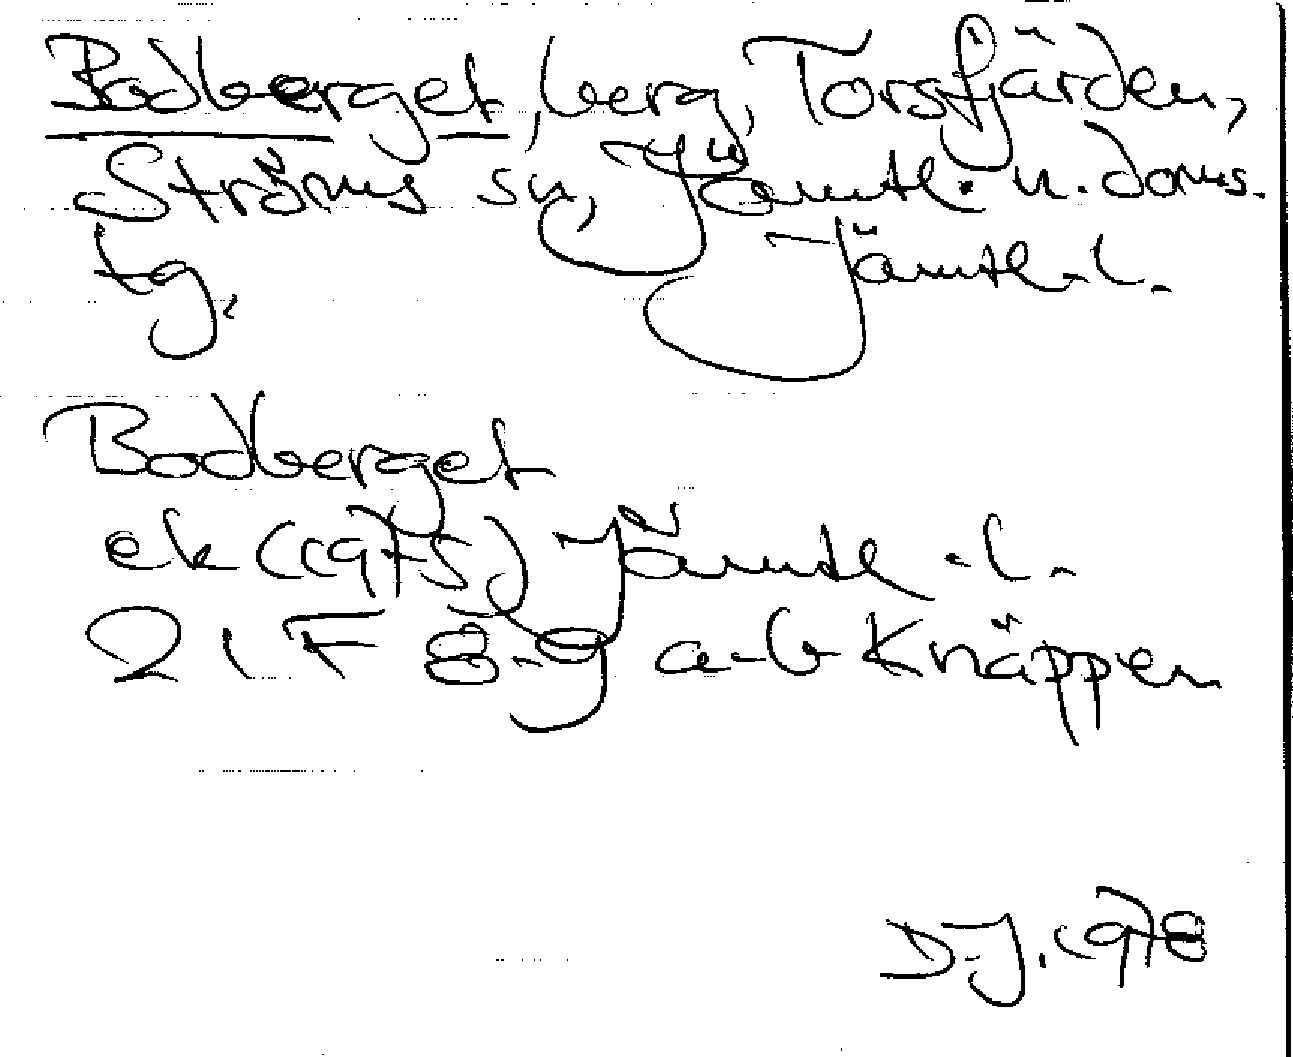 Bodberget, berg, Torsfjärden,
Ströms sn, Jämtl. n. doms.
tg. Jämtl. l.
Bodberget
ek (1975) Jämtl. l.
21F 8-9 a-b Knäppen
D-J. 1978